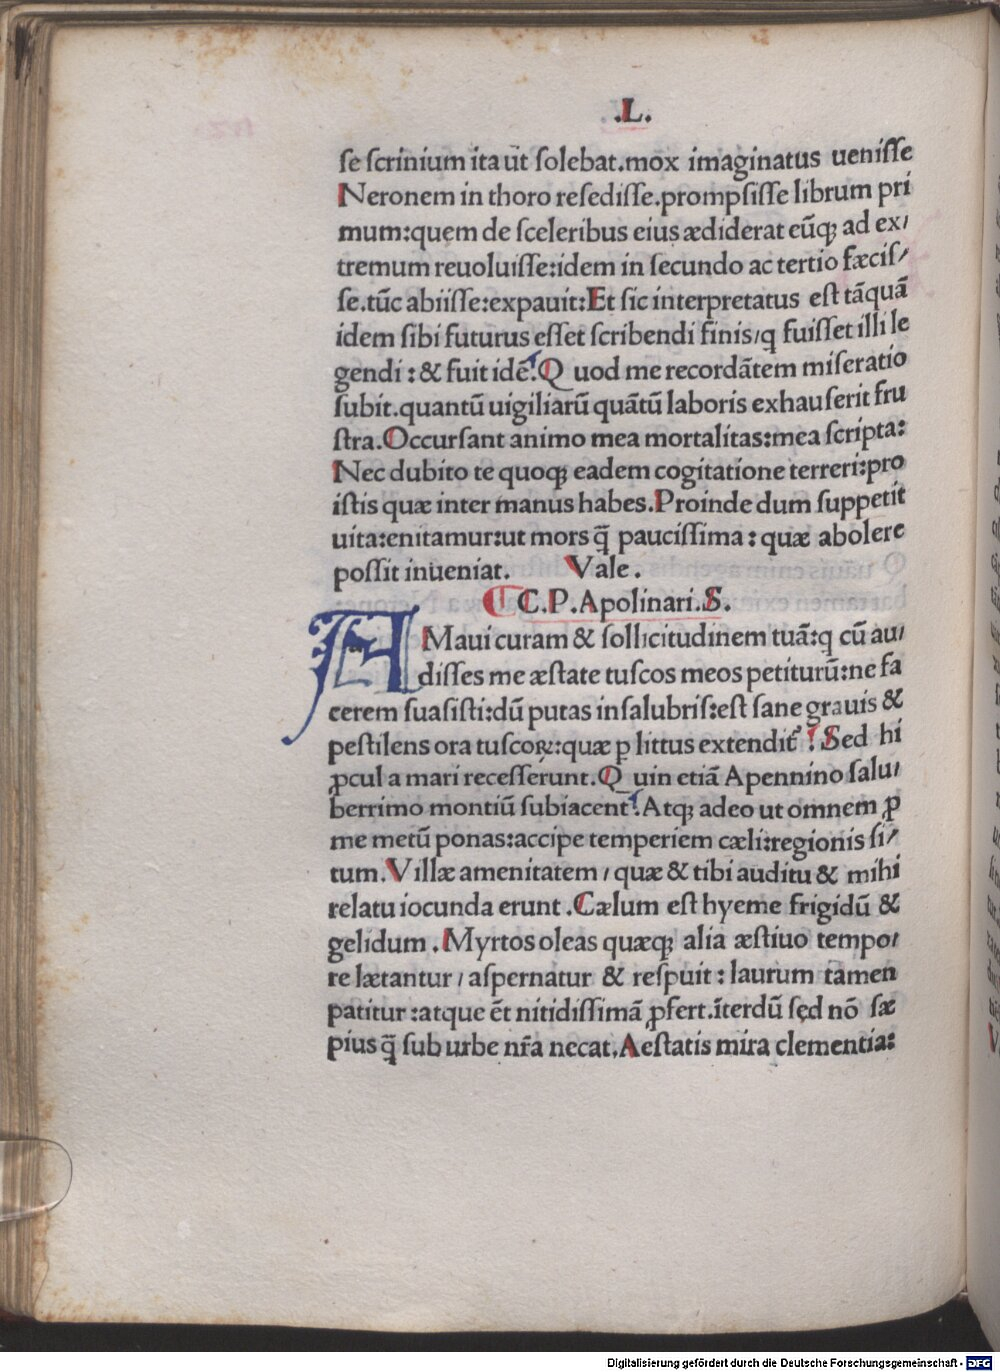 .L.
se scrinium ita ut solebat.mox imaginatus uenisse
Neronem in thoro resedisse.prompsisse librum pri
mum:quem de sceleribus eius ædiderat eūq; ad ex/
tremum reuoluisse:idem in secundo ac tertio fæcis/
se.tūc abiisse:expauit:Et sic interpretatus est tāquā
idem sibi futurus esset scribendi finis/q fuisset illi le
gendi:& fuit idē.Q uod me recordātem miseratio
subit.quantū uigiliarū quātū laboris exhauserit fru
stra.Occursant animo mea mortalitas:mea scripta:
Nec dubito te quoq; eadem cogitatione terreri:pro
istis quæ inter manus habes.Proinde dum suppetit
uita:enitamur:ut mors q̄ paucissima:quæ abolere
possit inueniat. Vale.
C.P.Apolinari.S.
AMaui curam & sollicitudinem tuā:q cū au/
disses me æstate tuscos meos petiturū:ne fa
cerem suasisti:dū putas insalubris:est sane grauis &
pestilens ora tuscoꝝ:quæ p littus extendit᷑! Sed hi
ꝓcul a mari recesserunt.Q uin etiā Apennino salu/
berrimo montiū subiacent!Atq; adeo ut omnem ꝓ
me metū ponas:accipe temperiem cæli:regionis si/
tum.Villæ amenitatem/quæ & tibi auditu & mihi
relatu iocunda erunt.Cælum est hyeme frigidū &
gelidum.Myrtos oleas quæq; alia æstiuo tempo/
re lætantur/aspernatur & respuit:laurum tamen
patitur:atque ēt nitidissimā ꝓfert.īterdū sed nō sæ
pius q̄ sub urbe nr̄a necat.Aestatis mira clementia:
Digitalisierung gefördert durch die Deutsche Forschungsgemeinschaft - DFG